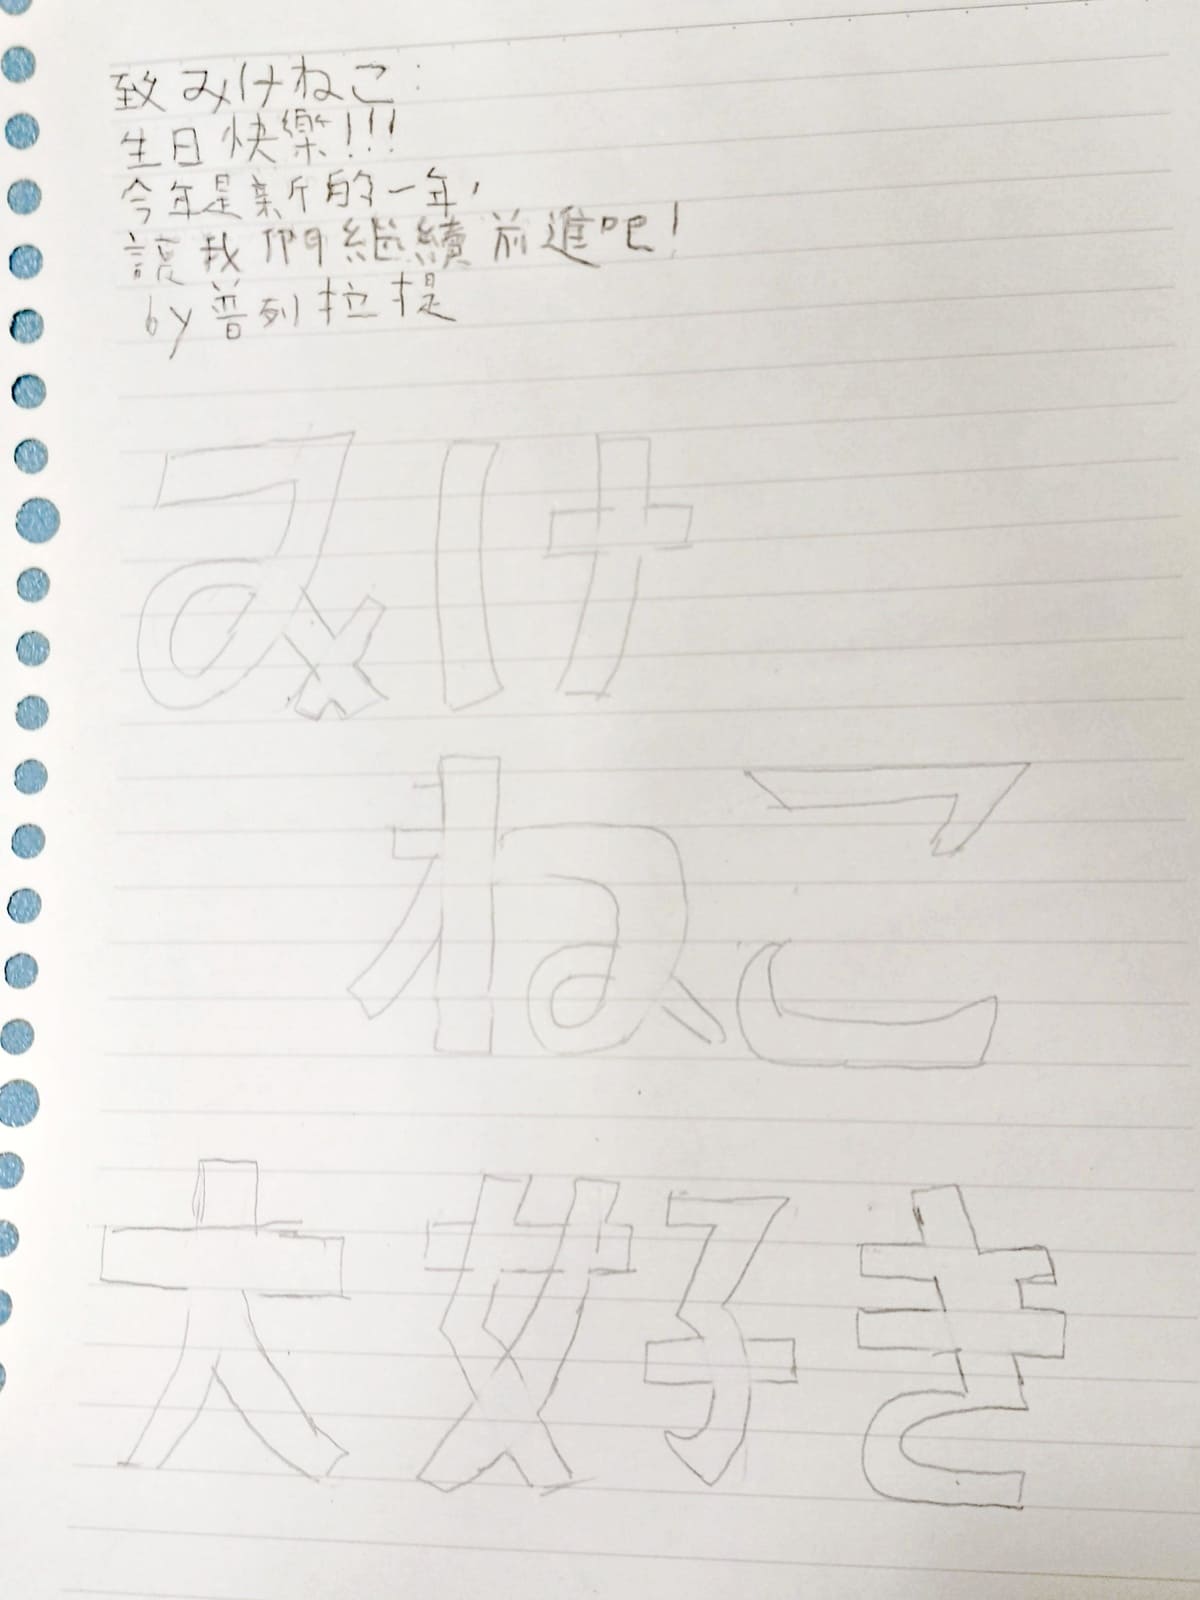 致みけねこ:
生日快樂!!!
今年是新的一年,
讓我們繼續前進吧!
by普列拉提
みけ
ねこ
大好き